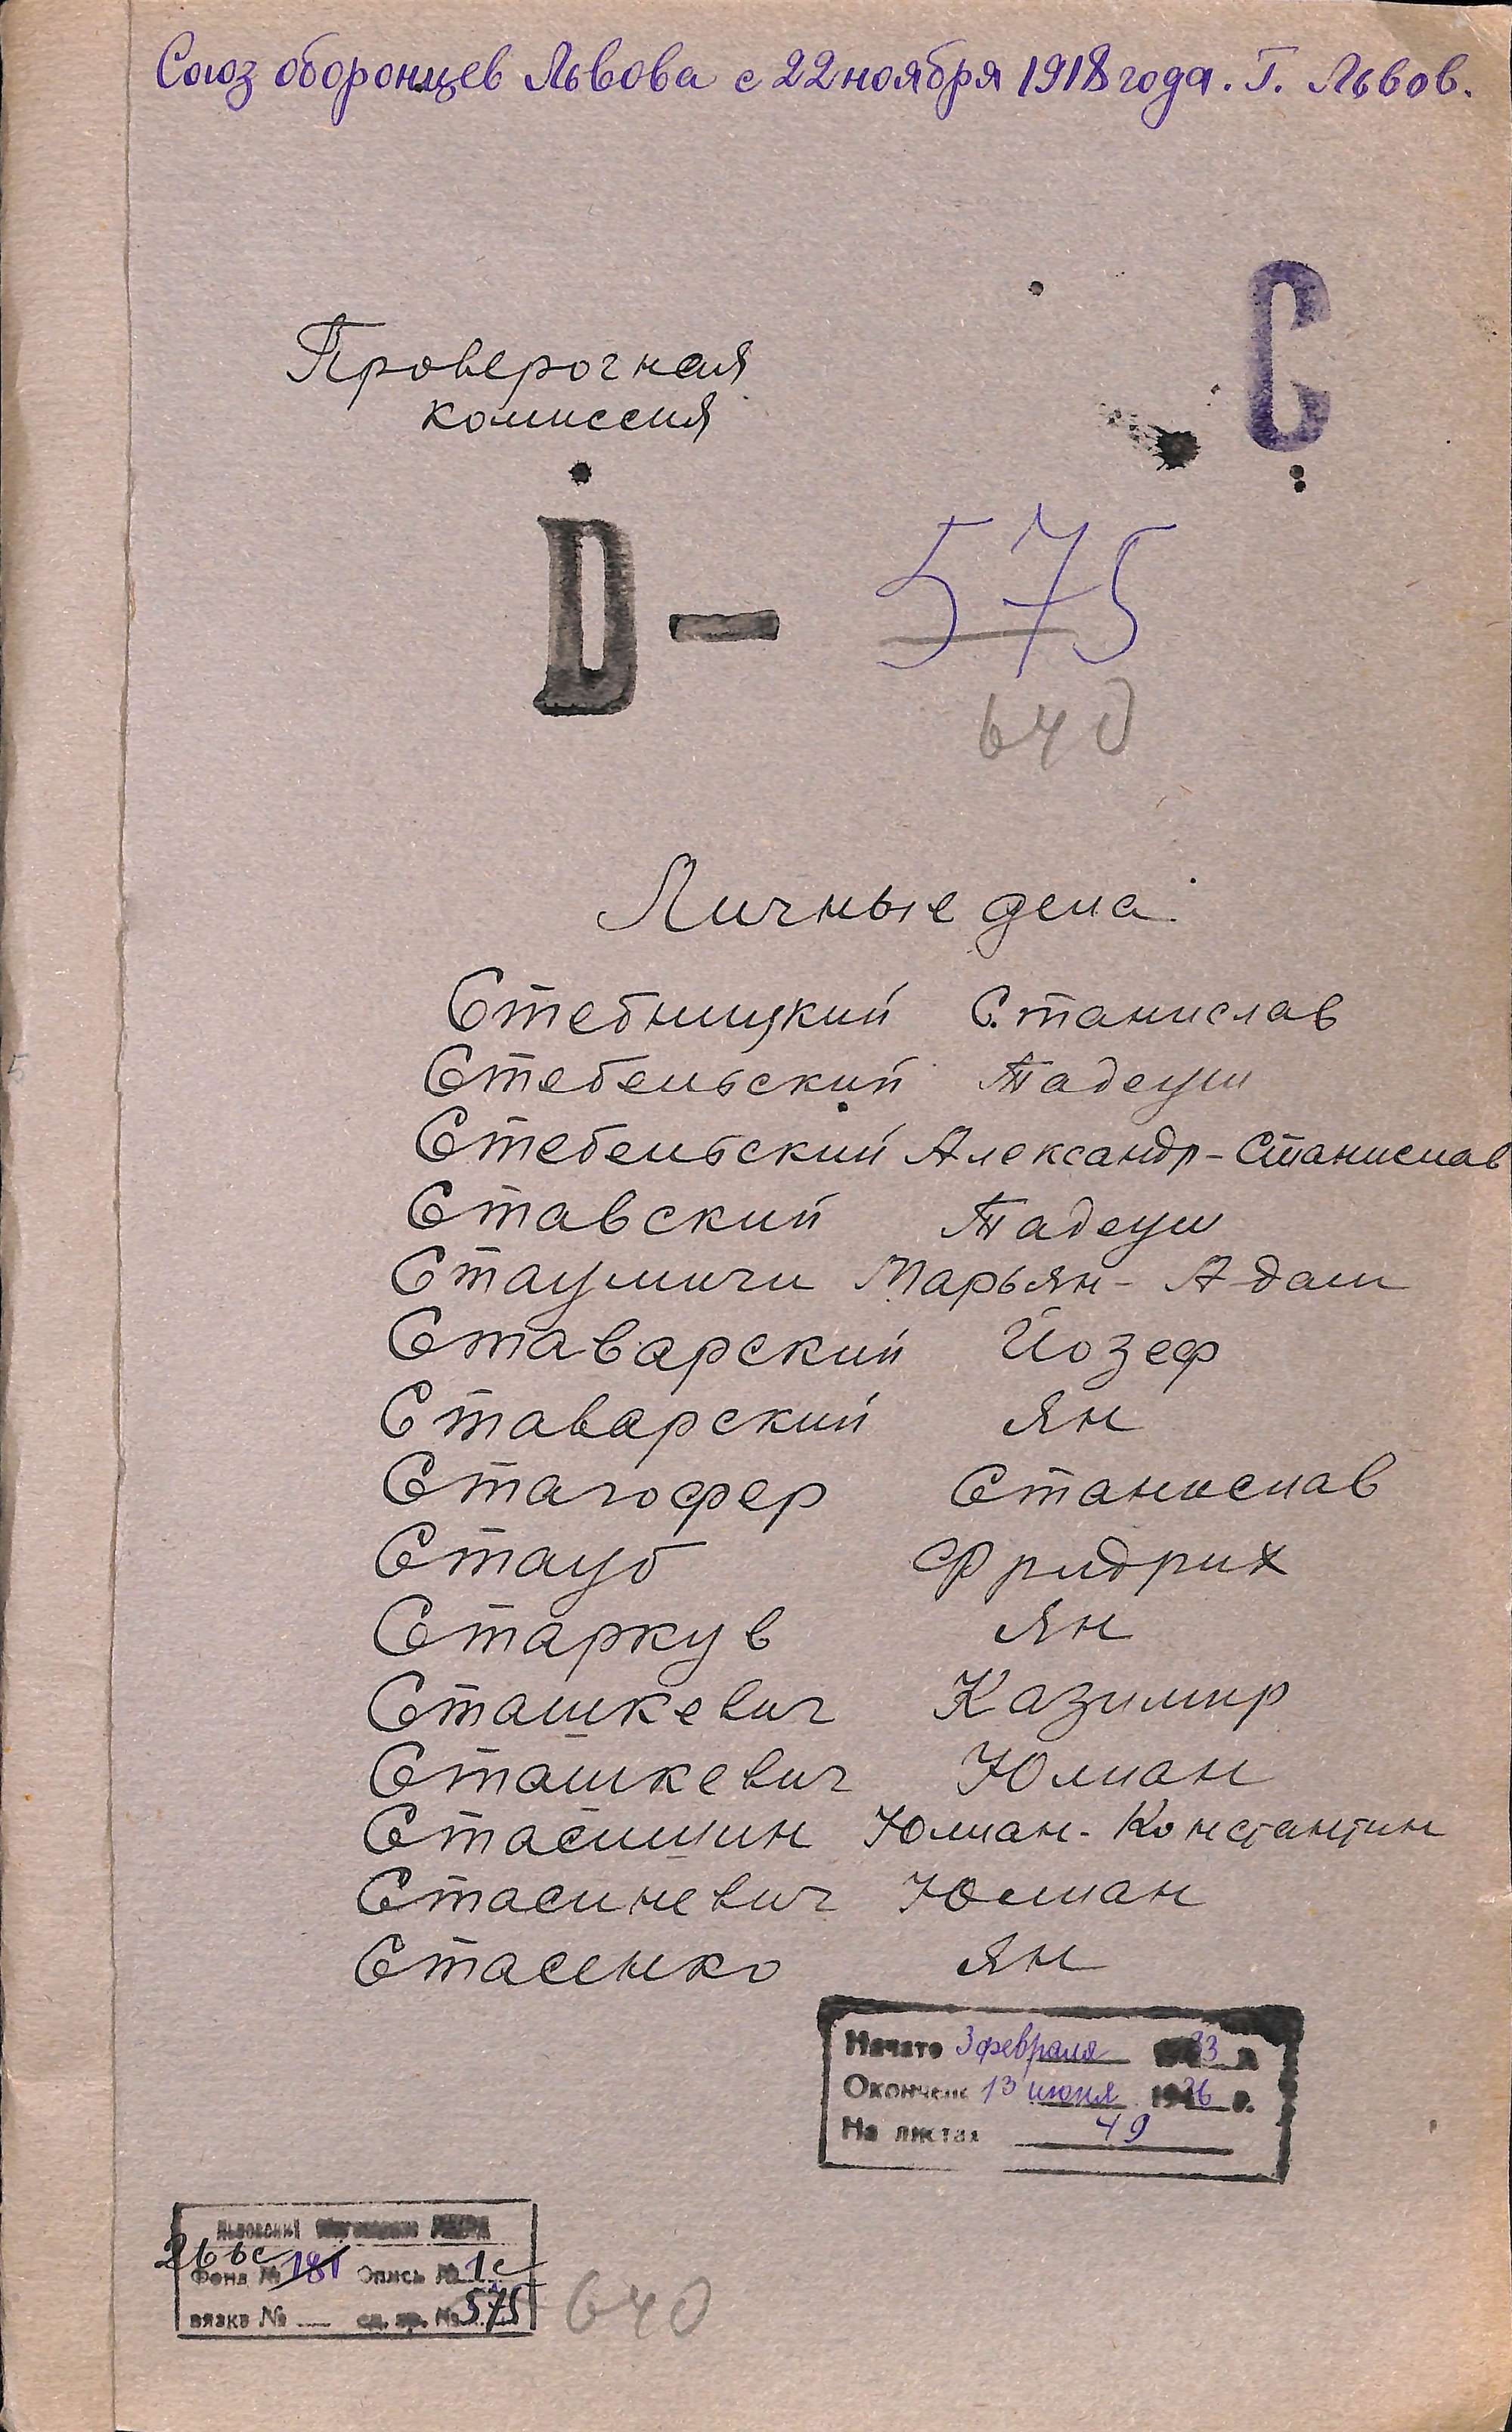 Союз оборонцев Львова с 22 ноября 1918 года. Г. Львов.
С
Проверочная
комиссия
D – 575
640
Личные дела
Стебницкий Станислав
Стебельский Тадеуш
Стебельский Александр-Станислав
Ставский Тадеуш
Марьян-Адам
Ставарский Йозеф
Ставарский Ян
Стагофер Станислав
Стауб Фридрих
Старкув Ян
Сташкевич Казимир
Сташкевич Юлиан
Стасишин Юлиан-Константин
Стасиневич Юлиан
Стасенко Ян
Начато 3 февраля 33 г.
Окончено 13 июня 1936 г.
На листах 49
Львовский
266с
Фонд № 181 Опись № 1с
вязка № — ед. хр. № 575
640